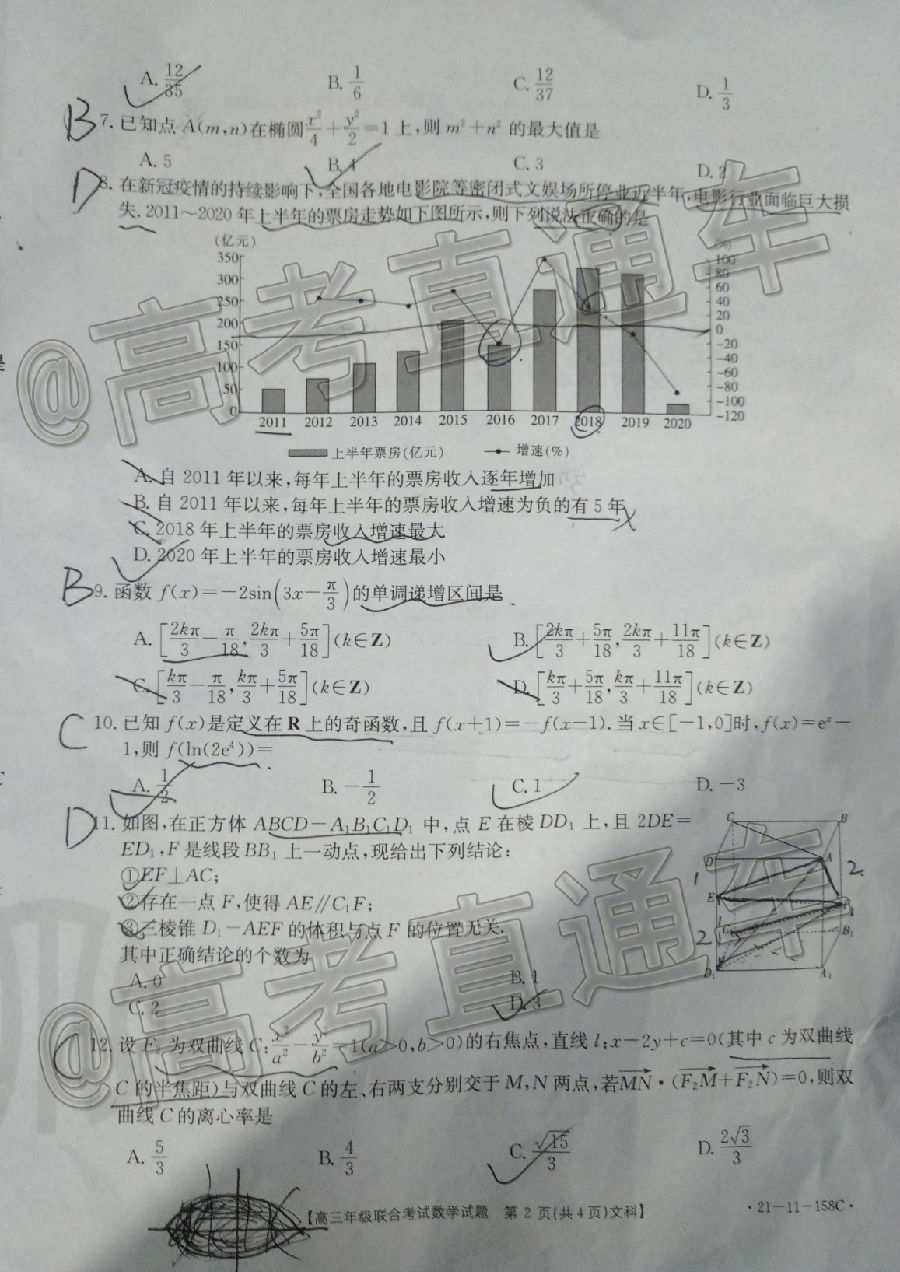 A. 12/35 B. 1/6 C. 12/37 D. 1/3
B 7. 已知点 A(m,n)在椭圆x²/4+y²/2=1上,则 m²+n² 的最大值是
A. 5 B. 4 C. 3 D. 2
D 8. 在新冠疫情的持续影响下,全国各地电影院等密闭式文娱场所停业近半年,电影行业面临巨大损
失. 2011~2020 年上半年的票房走势如下图所示,则下列说法正确的是
(亿元) (%)
350 300 250 200 150 100 50 0
100 80 60 40 20 0 -20 -40 -60 -80 -100 -120
2011 2012 2013 2014 2015 2016 2017 2018 2019 2020
上半年票房(亿元) 增速(%)
A. 自 2011 年以来,每年上半年的票房收入逐年增加
B. 自 2011 年以来,每年上半年的票房收入增速为负的有 5 年
C. 2018 年上半年的票房收入增速最大
D. 2020 年上半年的票房收入增速最小
B 9. 函数 f(x)=-2sin(3x-π/3)的单调递增区间是
A. [2kπ/3-π/18,2kπ/3+5π/18](k∈Z) B. [2kπ/3+5π/18,2kπ/3+11π/18](k∈Z)
C. [kπ/3-π/18,kπ/3+5π/18](k∈Z) D. [kπ/3+5π/18,kπ/3+11π/18](k∈Z)
C 10. 已知 f(x)是定义在 R 上的奇函数,且 f(x+1)=-f(x-1). 当 x∈[-1,0]时,f(x)=eˣ-
1,则 f(ln(2e⁴))=
A. 1/2 B. -1/2 C. 1 D. -3
D 11. 如图,在正方体 ABCD-A₁B₁C₁D₁ 中,点 E 在棱 DD₁ 上,且 2DE=
ED₁,F 是线段 BB₁ 上一动点,现给出下列结论:
①EF⊥AC;
②存在一点 F,使得 AE∥C₁F;
③三棱锥 D₁-AEF 的体积与点 F 的位置无关.
其中正确结论的个数为
A. 0 B. 1
C. 2 D. 3
C B D A E B₁ D₁ A₁
1 2 2
C 12. 设 F₂ 为双曲线 C:x²/a²-y²/b²=1(a>0,b>0)的右焦点,直线 l:x-2y+c=0(其中 c 为双曲线
C 的半焦距)与双曲线 C 的左、右两支分别交于 M,N 两点,若MN·(F₂M+F₂N)=0,则双
曲线 C 的离心率是
A. 5/3 B. 4/3 C. √15/3 D. 2√3/3
【高三年级联合考试数学试题 第 2 页(共 4 页)文科】 ·21-11-158C·
@高考直通车
@高考直通车